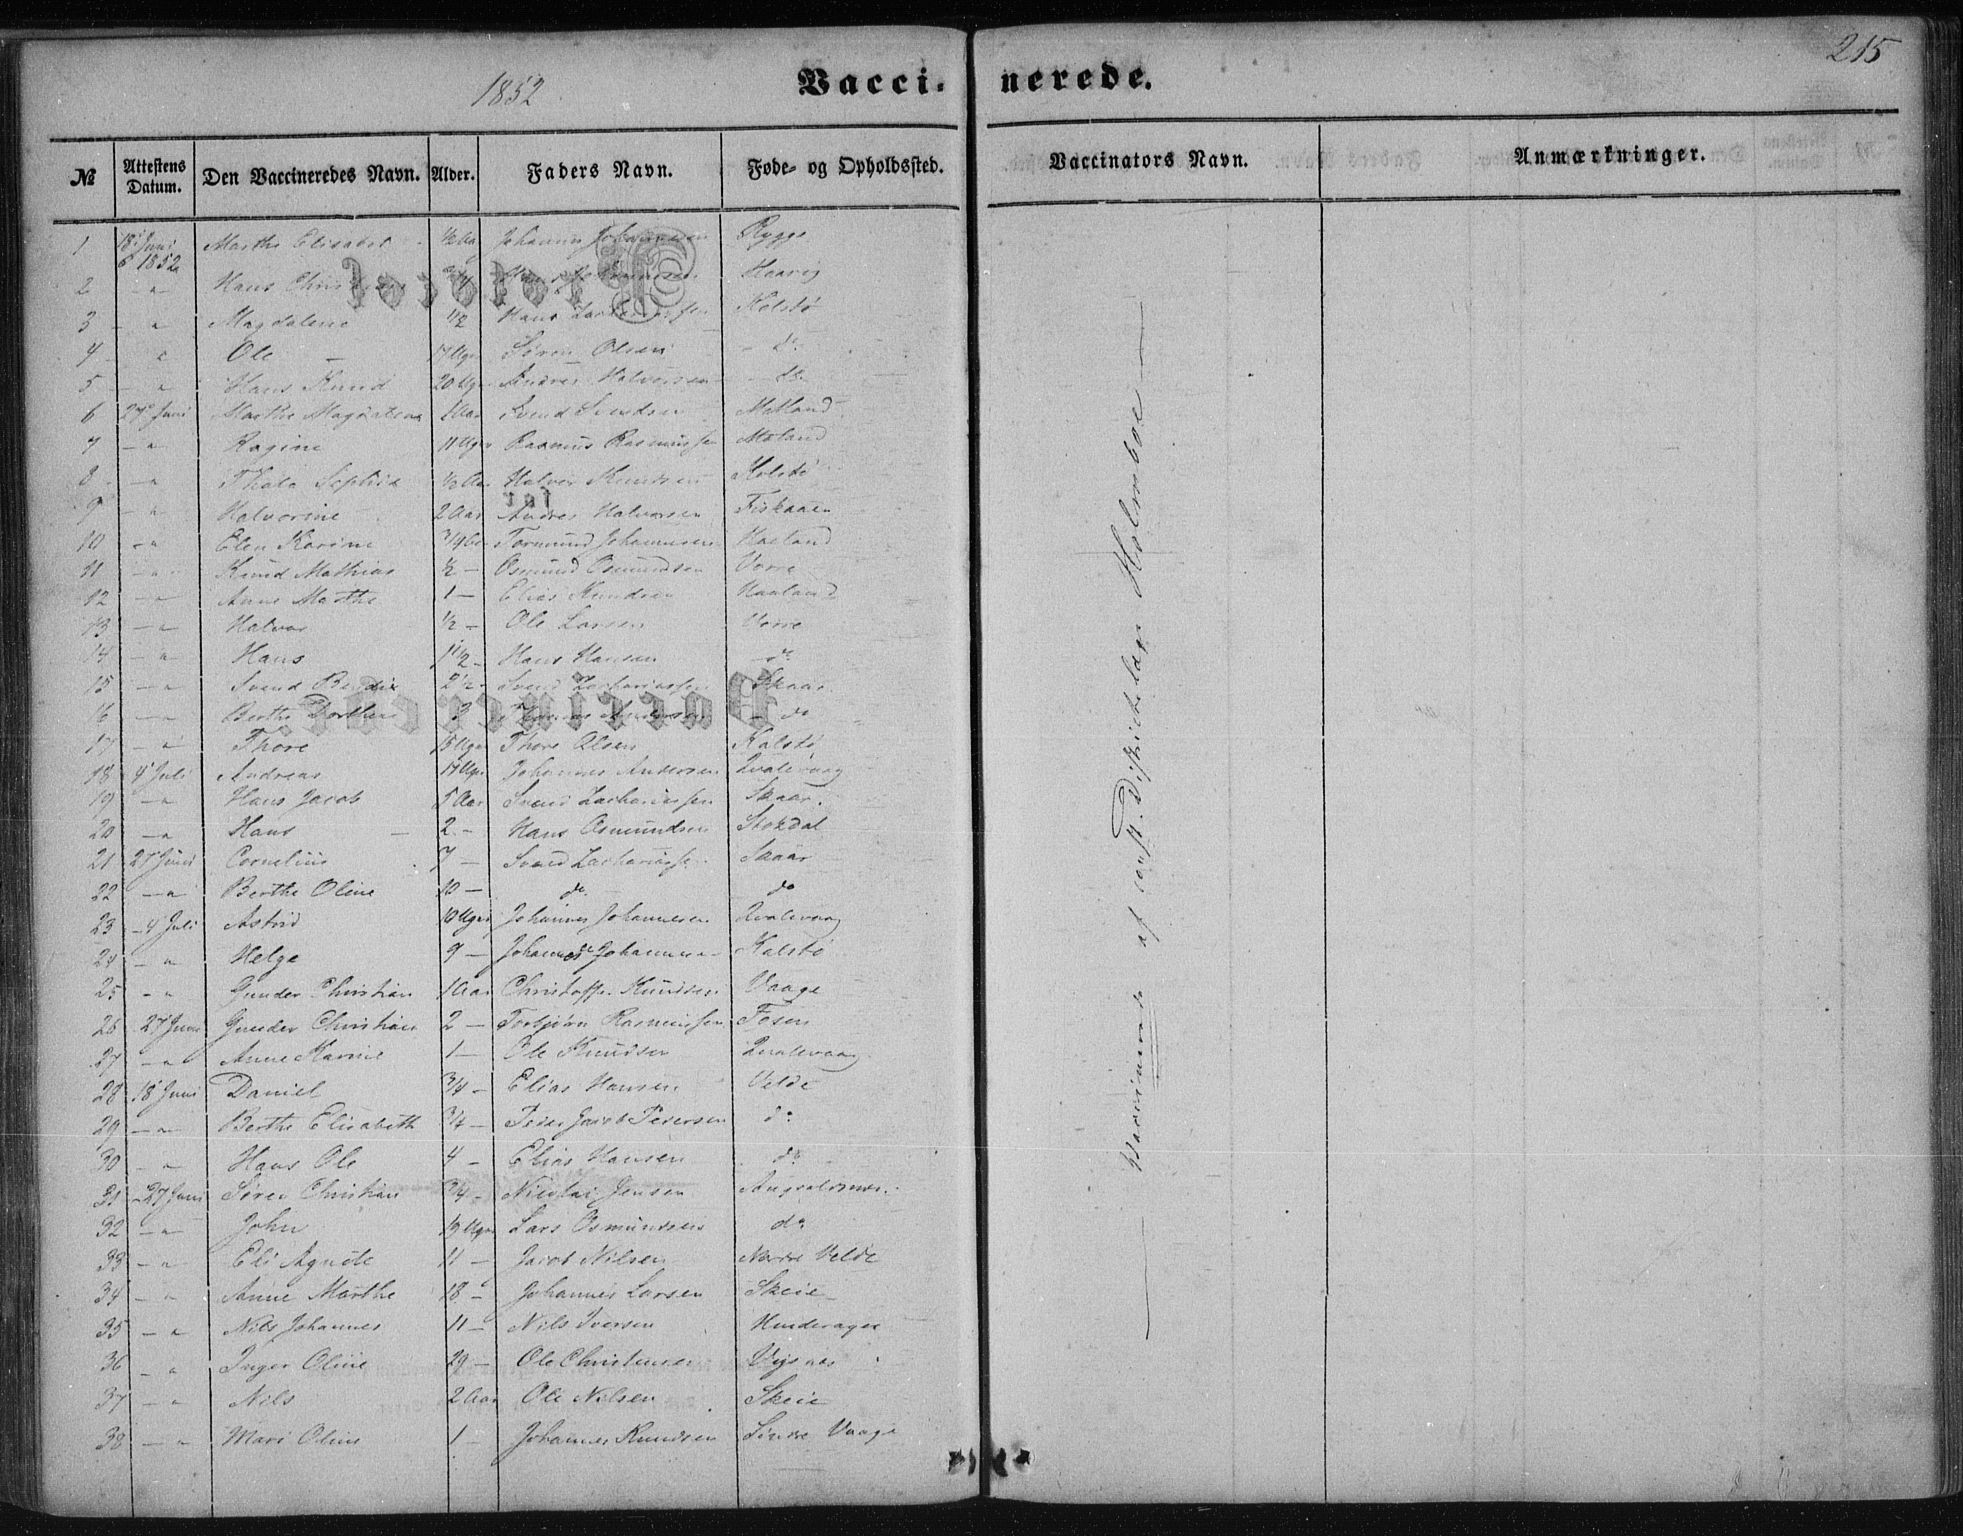 215
1852
Vacci-
nerede.
№ Attestens Datum. Den Vaccineredes Navn. Alder. Faders Navn. Føde- og Opholdssted. Vaccinators Navn. Anmærkninger.
1 18 Juni 1852 Marthe Elisabet ½ Aar Johannes Johannesen Rygge
2 - " Hans Christian
3 - " Magdalene 1½ Hans
4 - " Ole - 17 Uger Søren Olsen - do
5 - " Hans Knud 20 Uger Andres Halvorsen - do
6 27 Juni Marthe Magdalena 1 Aar Svend Svendsen
7 - " Ragine 11 Uger Rasmus Rasmussen
8 - " ½ Aar Halvor Knudsen
9 - " Halvorine 2 Aar Andres Halvorsen Fiskaaen
10 - " Elen Karine ¾ Aar Tormund Johannesen Haaland
11 - " Knud Mathias ½ - Osmund Osmundsen Vorre
12 - " Anne Marthe 1 - Elias Knudsen Haaland
13 - " Halvor ½ - Ole Larsen Vorre
14 - " Hans 1½ - Hans Hansen - do
15 - " Svend 2½ - Svend Zachariassen Skaar
16 - " Berthe Dorthea 3 do
17 - " Thore 15 Uger Thore Olsen Kalstø
18 4 Juli Andreas 17 Uger Johannes Andersen Qvalevaag
19 - " Hans Jacob 5 Aar Svend Zachariassen Skaar.
20 - " Hans - 2 - Hans Osmundsen Stokdal
21 27 Juni Cornelius 7 - Svend Zachariassen Skaar
22 - " Berthe Oline 10 - do do
23 - 4 Juli Astrid 10 Uger Johannes Johannesen Qvalevaag
24 - " Helge 9 - Johannes Johannesen Kalstø
25 - " Gunder Christian 1 Aar Christoffer Knudsen Vaage
26 27 Juni Gunder Christian 2 - Torbjørn Rasmussen Fosen
27 - " Anne Karine 1 - Ole Knudsen Qvalevaag
28 18 Juni Daniel ¾ - Elias Hansen Velde
29 - " Berthe Elisabeth ¾ - Peder Jacob Pedersen do
30 - " Hans Ole 4 - Elias Hansen do
31 - 27 Juni Søren Christian ¾ - Nicolai Jensen
32 - " John 19 Uger Lars Osmundsen do
33 - " Eli Agnete 11 - Jacob Nilsen Nordre Velde
34 - " Anne Marthe 18 - Johannes Larsen Skeie
35 - " Nils Johannes 11 - Nils Iversen
36 - " Inger Oline 29 - Ole Christensen
37 - " Nils 2 Aar Ole Nilsen Skeie
38 - " Mari Oline 1 - Johannes Knudsen Søndre Vaage
Vaccinerede af const. Districtslæge Holmboe